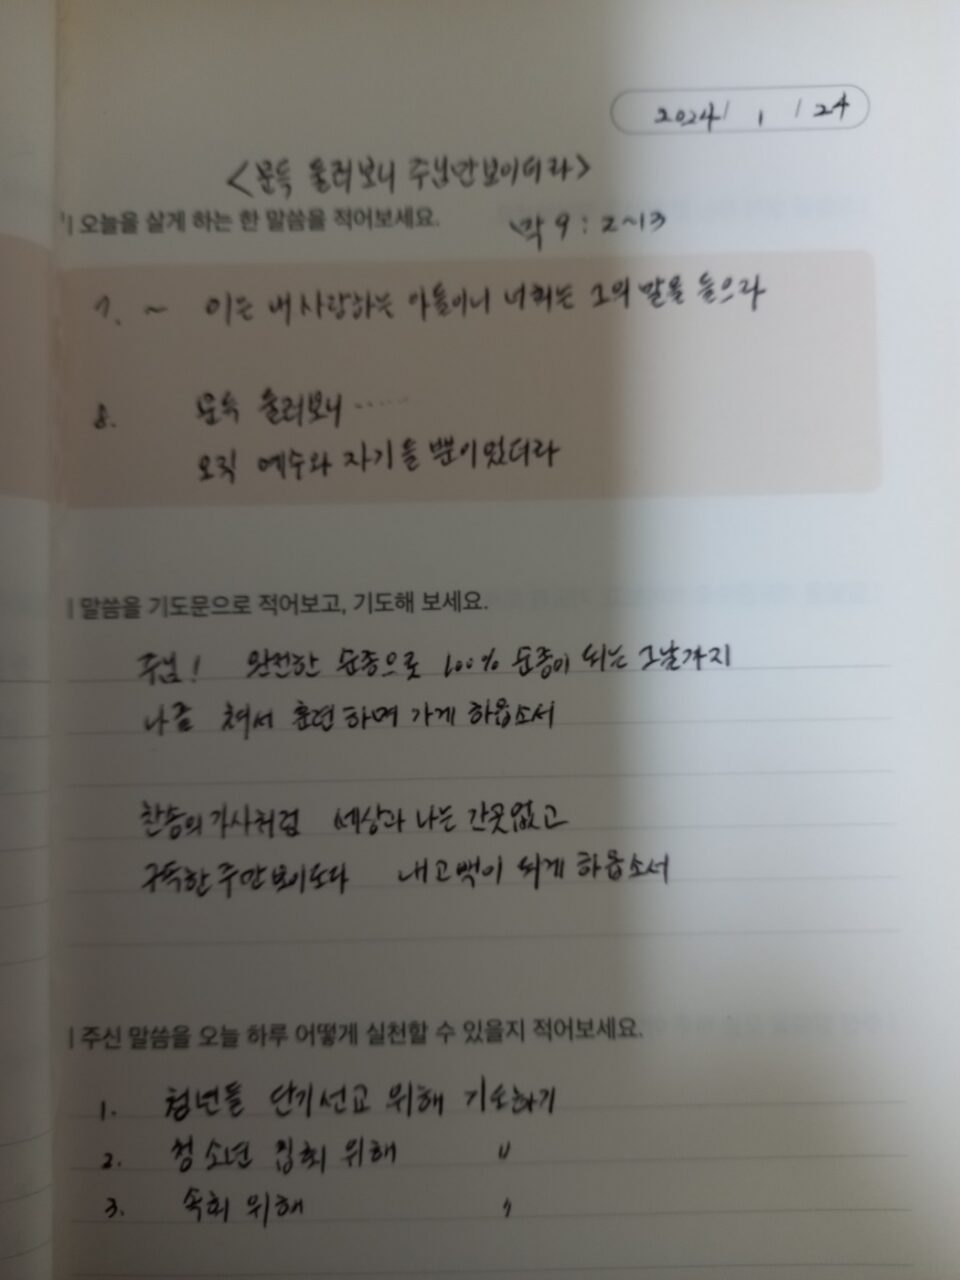 2024 / 1 / 24
<문득 둘러보니 주님만 보이더라>
| 오늘을 살게 하는 한 말씀을 적어보세요. 막 9 : 2~13
7. ~ 이는 내 사랑하는 아들이니 너희는 그의 말을 들으라
8. 문득 둘러보니 ·····
오직 예수와 자기들 뿐이었더라
| 말씀을 기도문으로 적어보고, 기도해 보세요.
주님! 완전한 순종으로 100% 순종이 되는 그날까지
나를 쳐서 훈련하며 가게 하옵소서
찬송의 가사처럼 세상과 나는 간곳없고
구속한 주만 보이도다 내 고백이 되게 하옵소서
| 주신 말씀을 오늘 하루 어떻게 실천할 수 있을지 적어보세요.
1. 청년들 단기선교 위해 기도하기
2. 청소년 집회 위해 〃
3. 속회 위해 〃